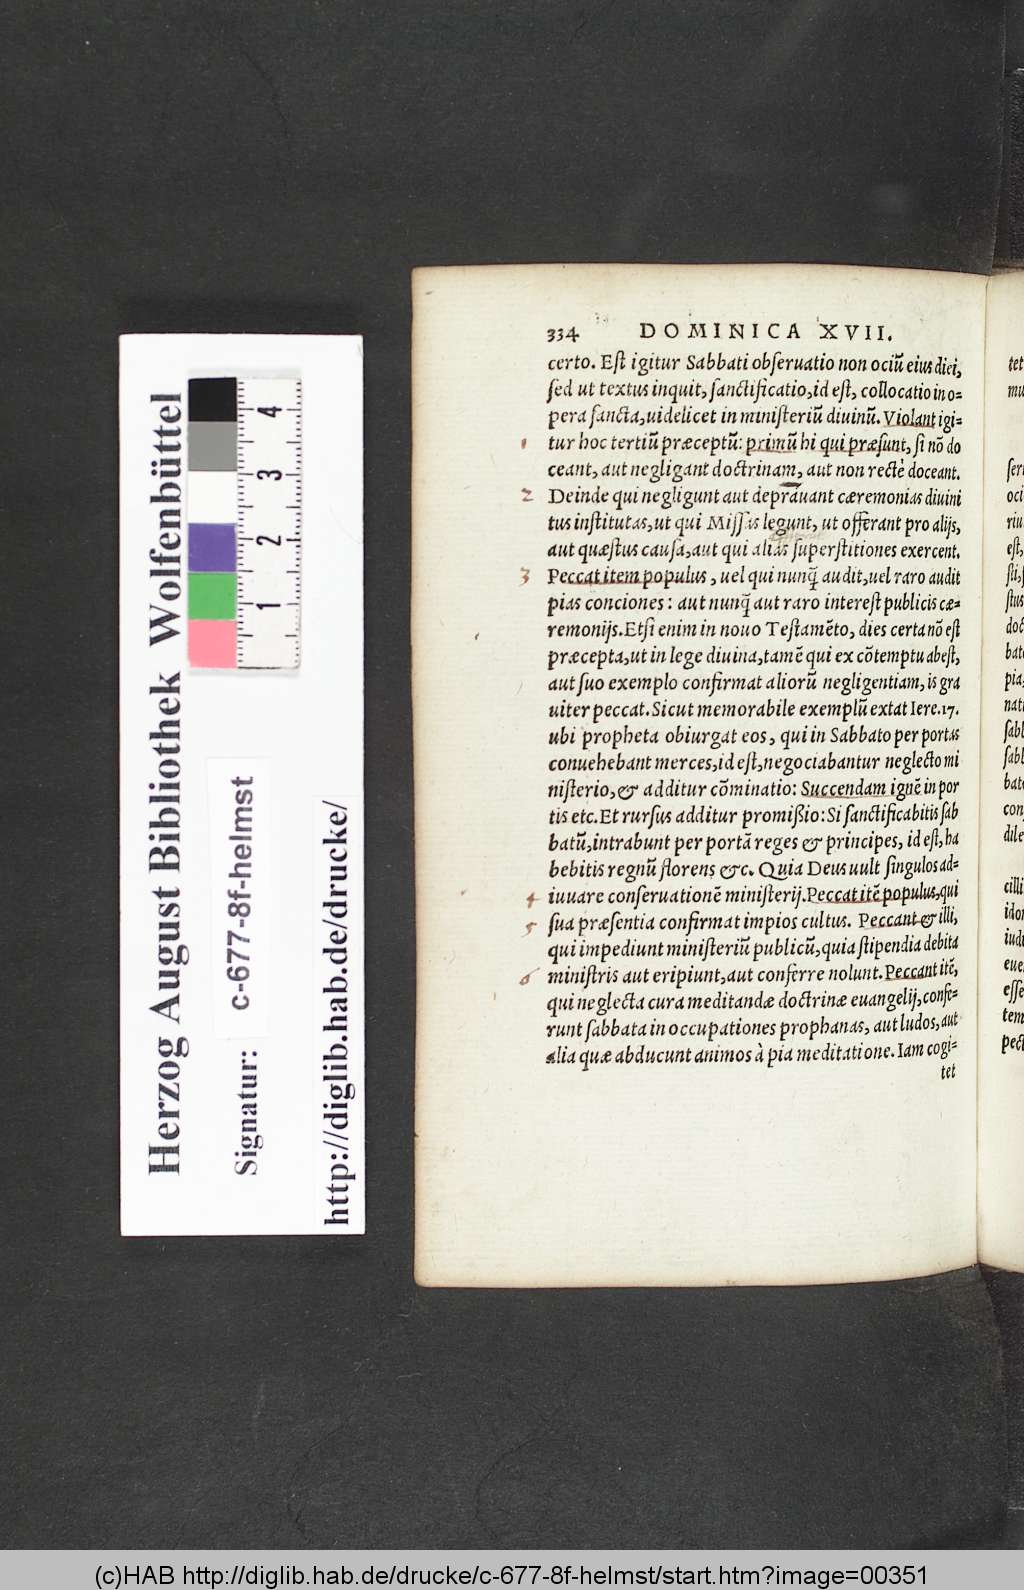 334 DOMINICA XVII.
certo. Eſt igitur Sabbati obſeruatio non ociũ eius diei,
ſed ut textus inquit, ſanctificatio, id eſt, collocatio in o=
pera ſancta, uidelicet in miniſteriũ diuinũ. Violant igi=
1 tur hoc tertiũ præceptũ: primũ hi qui præſunt, ſi nõ do
ceant, aut negligant doctrinam, aut non rectè doceant.
2 Deinde qui negligunt aut deprauant cæremonias diuini
tus inſtitutas, ut qui Miſſis legunt, ut offerant pro alijs,
aut quæſtus cauſa, aut qui alias ſuperſtitiones exercent.
3 Peccat item populus, uel qui nunq̃ audit, uel raro audit
pias conciones: aut nunq̃ aut raro intereſt publicis cæ=
remonijs. Etſi enim in nouo Teſtamẽto, dies certa nõ eſt
præcepta, ut in lege diuina, tamẽ qui ex cõtemptu abeſt,
aut ſuo exemplo confirmat aliorũ negligentiam, is gra
uiter peccat. Sicut memorabile exemplũ extat Iere.17.
ubi propheta obiurgat eos, qui in Sabbato per portas
conuehebant merces, id eſt, negociabantur neglecto mi
niſterio, & additur cõminatio: Succendam ignẽ in por
tis etc. Et rurſus additur promißio: Si ſanctificabitis ſab
batũ, intrabunt per portã reges & principes, id eſt, ha
bebitis regnũ florens &c. Quia Deus uult ſingulos ad=
4 iuuare conſeruationẽ miniſterij. Peccat itẽ populus, qui
5 ſua præſentia confirmat impios cultus. Peccant & illi,
qui impediunt miniſteriũ publicũ, quia ſtipendia debita
6 miniſtris aut eripiunt, aut conferre nolunt. Peccant itẽ,
qui neglecta cura meditandæ doctrinæ euangelij, confe=
runt ſabbata in occupationes prophanas, aut ludos, aut
alia quæ abducunt animos à pia meditatione. Iam cogi=
tet
Herzog August Bibliothek Wolfenbüttel
Signatur: c-677-8f-helmst
http://diglib.hab.de/drucke/
1 2 3 4
(c)HAB http://diglib.hab.de/drucke/c-677-8f-helmst/start.htm?image=00351